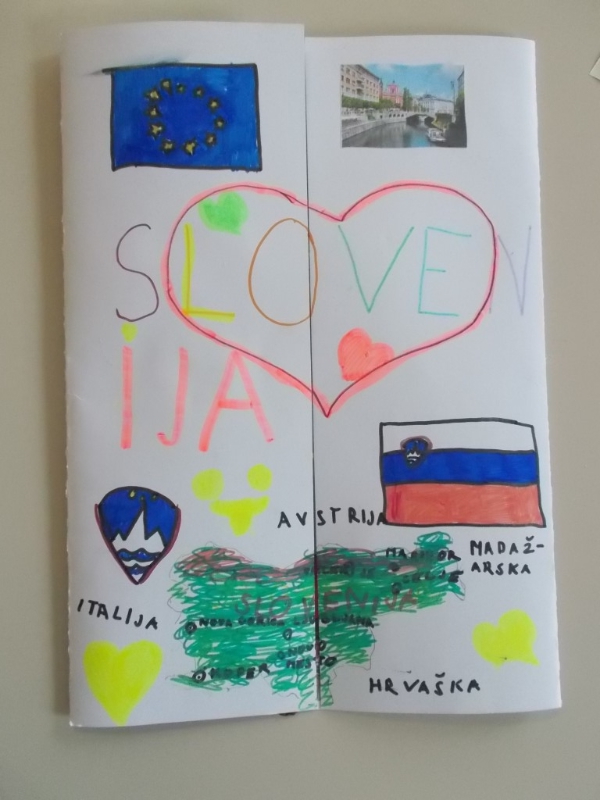 SLOVEN
iJA
AVSTRIJA
MADAŽ-
ARSKA
MARIBOR
CELJE
SLOVENIJA
ITALIJA
NOVA GORICA LJUBLJANA
NOVO
MESTO
KOPER
HRVAŠKA